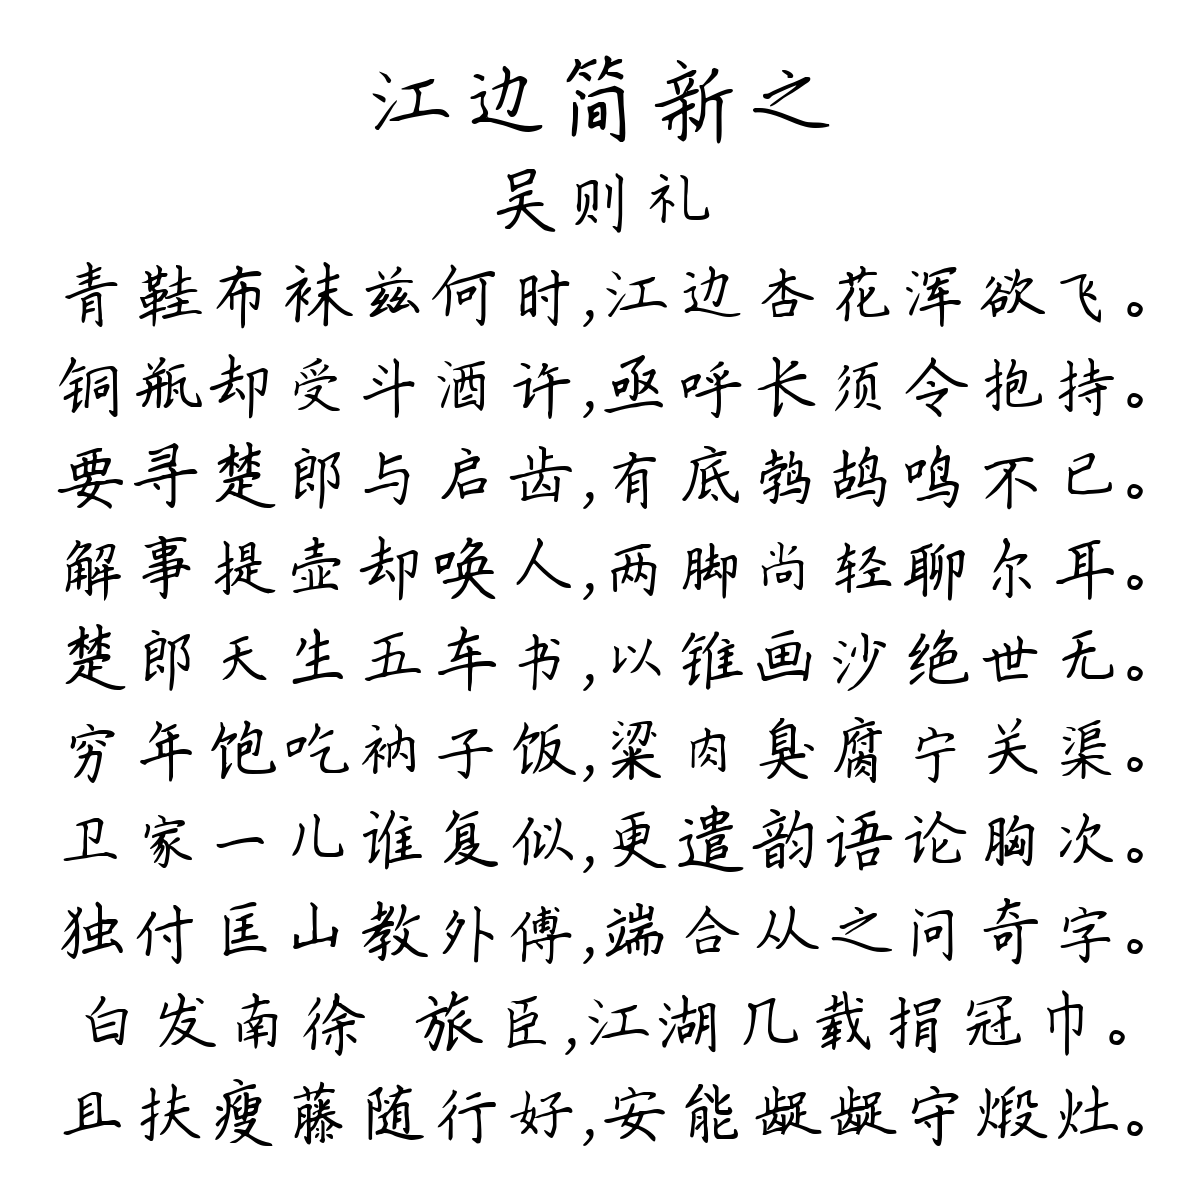 江边简新之
吴则礼
青鞋布袜兹何时,江边杏花浑欲飞。
铜瓶却受斗酒许,亟呼长须令抱持。
要寻楚郎与启齿,有底鹁鸪鸣不已。
解事提壶却唤人,两脚尚轻聊尔耳。
楚郎天生五车书,以锥画沙绝世无。
穷年饱吃衲子饭,粱肉臭腐宁关渠。
卫家一儿谁复似,更遣韵语论胸次。
独付匡山教外傅,端合从之问奇字。
白发南徐 旅臣,江湖几载捐冠巾。
且扶瘦藤随行好,安能龊龊守煅灶。